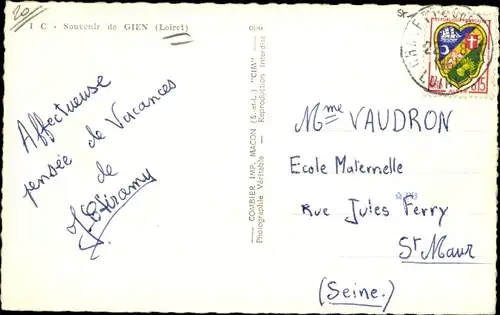 20
1 C - Souvenir de GIEN (Loiret)
Affectueuse
pensée de Vacances
de
COMBIER IMP. MACON (S.-et-L.) "CIM"
Photographie Véritable - Reproduction Interdite
Mme VAUDRON
Ecole Maternelle
Rue Jules Ferry
St Maur
(Seine.)
0,15